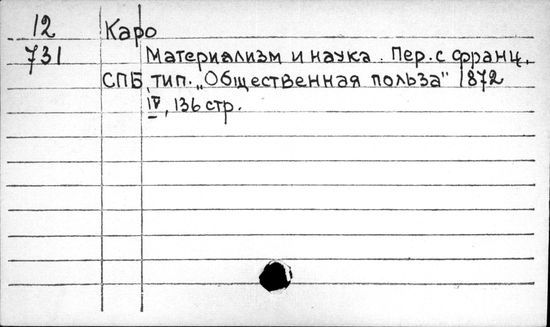 12 Каро
731 Материализм и наука. Пер. с франц.
СПБ, тип. „Общественная польза" 1872
IV, 136 стр.